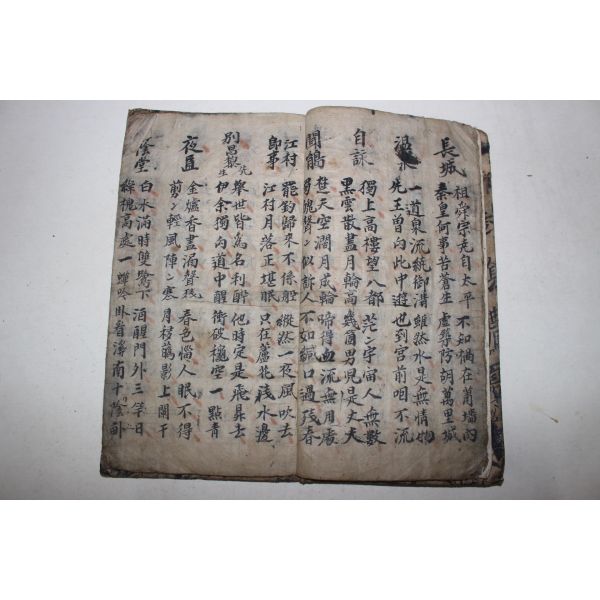 長城
祖舜宗堯自太平 不知禍在蕭墻內
秦皇何事苦蒼生 虛築防胡萬里城
一道泉流統御溝 雖然水是無情物
先王曾向此中遊 也到宮前咽不流
自詠
獨上高樓望八都 茫〻宇宙人無數
黑雲散盡月輪高 幾箇男兒是丈夫
聞鵑
楚天空濶月成輪 啼得血流無用處
蜀魄聲〻似訴人 不如緘口過殘春
江村即事
罷釣歸來不係船 縱然一夜風吹去
江村月落正堪眠 只在蘆花淺水邊
別昌黎先生
擧世皆爲名利醉 他時定是飛昇去
伊余獨向道中醒 衝破穐空一點靑
夜直
金爐香盡漏聲殘 春色惱人眠不得
前〻輕風陣〻寒 月移花影上闌干
白水滿時雙鷺下 酒醒門外三竿日
綠槐高處一蟬吟 卧看溪南十陰畝